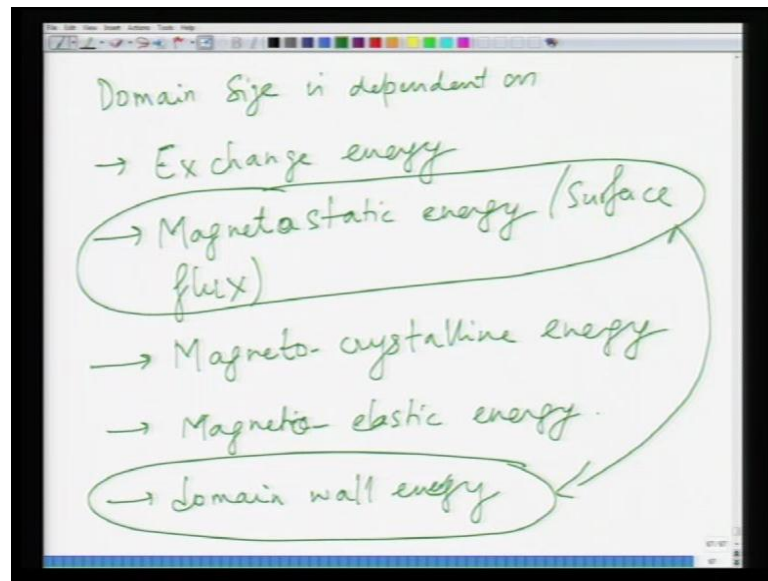 File Edit View Insert Actions Tools Help
Domain Size is dependent on
→ Exchange energy
→ Magnetostatic energy (Surface
flux)
→ Magneto-crystalline energy
→ Magneto-elastic energy.
→ domain wall energy
97/97
97